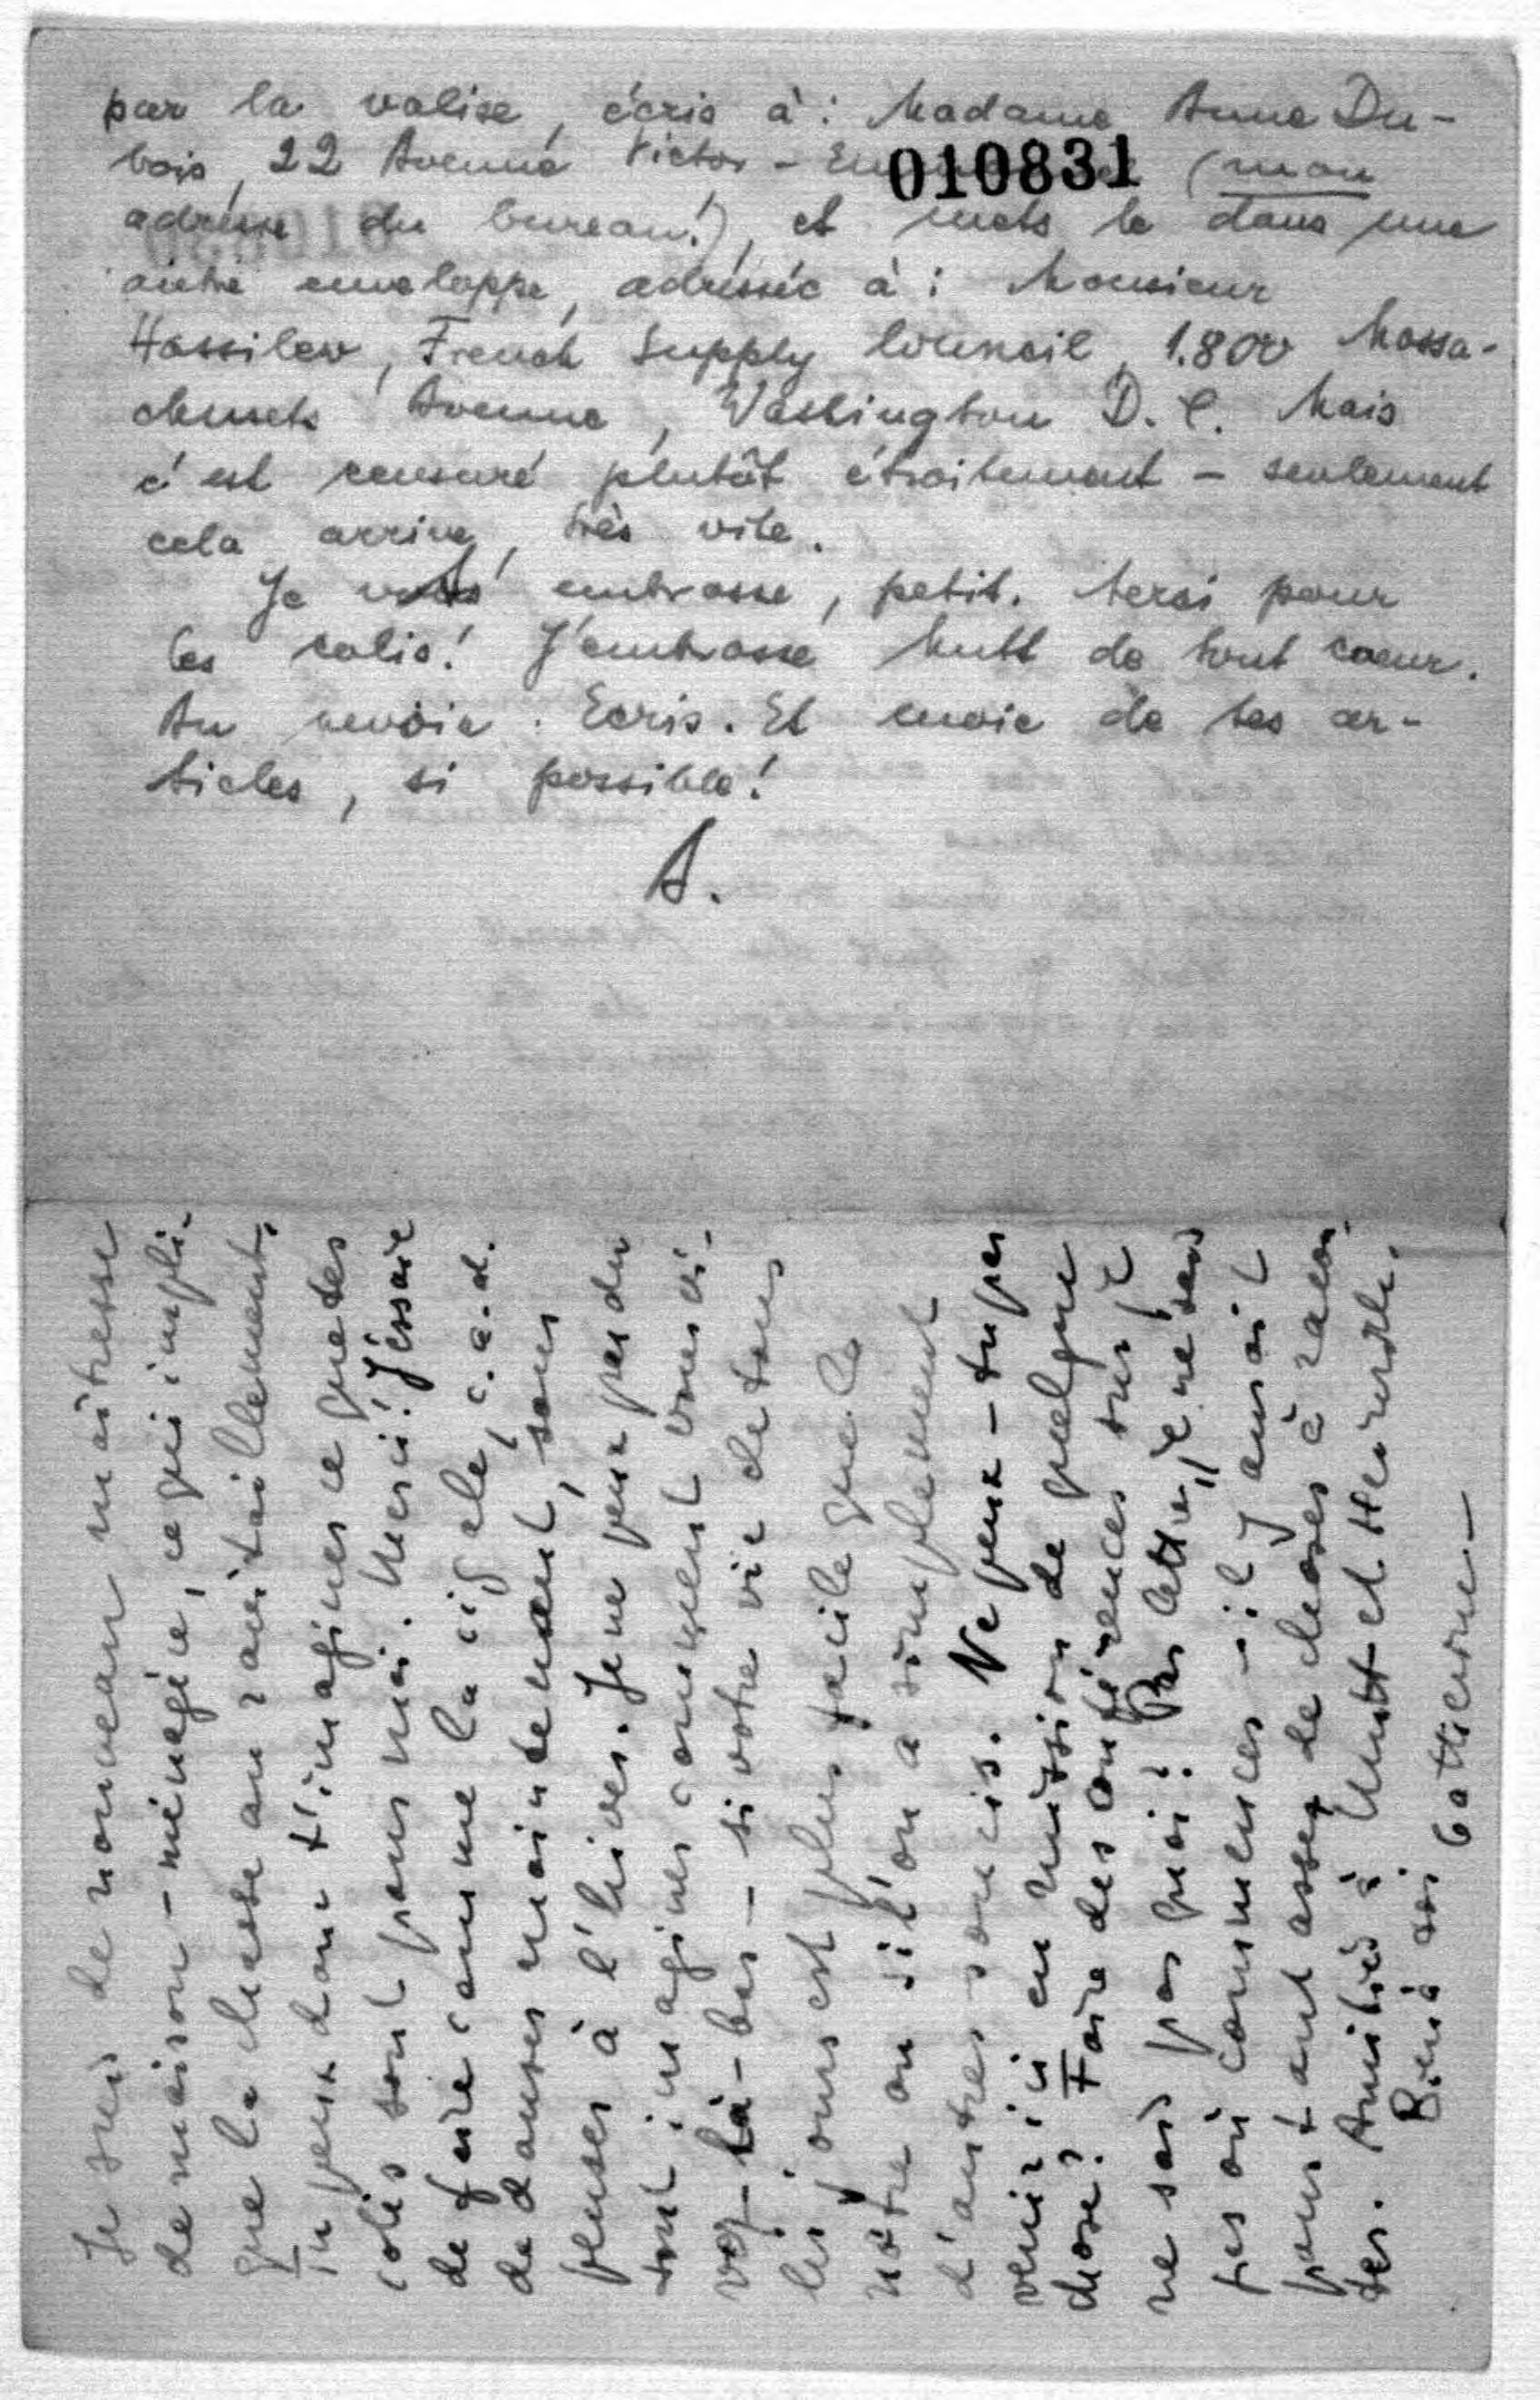 par la valise, écris à : Madame Anne Du-
bois, 22 Avenue Victor-
010831
(mon
adresse du bureau!), et mets le dans une
autre enveloppe, adressée à : Monsieur
Hassilew, French Supply Council, 1.800 Massa-
chussets Avenue, Washington D.C. Mais
c'est censuré plutôt étroitement – seulement
cela arrive, très vite.
Je vous embrasse, petit. Merci pour
les colis! J'embrasse Mutt de tout coeur.
Au revoir. Ecris. Et envoie de tes ar-
ticles, si possible!
A.
Je suis de nouveau maîtresse
de maison-ménagère, ce qui impli-
que la chasse au ravitaillement.
Tu peux donc t'imaginer ce que tes
colis sont pour moi. Merci! J'éssaie
de faire comme la cigale, c.a.d.
de danser maintenant, sans
penser à l'hiver. Je ne peux pas du
tout imaginer comment vous vi-
vez là-bas – si votre vie de tous
les jours est plus facile que la
nôtre ou si l'on a simplement
d'autres soucis. Ne peux-tu pas
venir ici en mission de quelque
chose? Faire des conférences sur je
ne sais pas quoi? Par lettre, je ne sais
pas où commencer – il y aurait
pourtant assez de choses à racon-
ter. Amitiés à Mutt et
Bien à toi